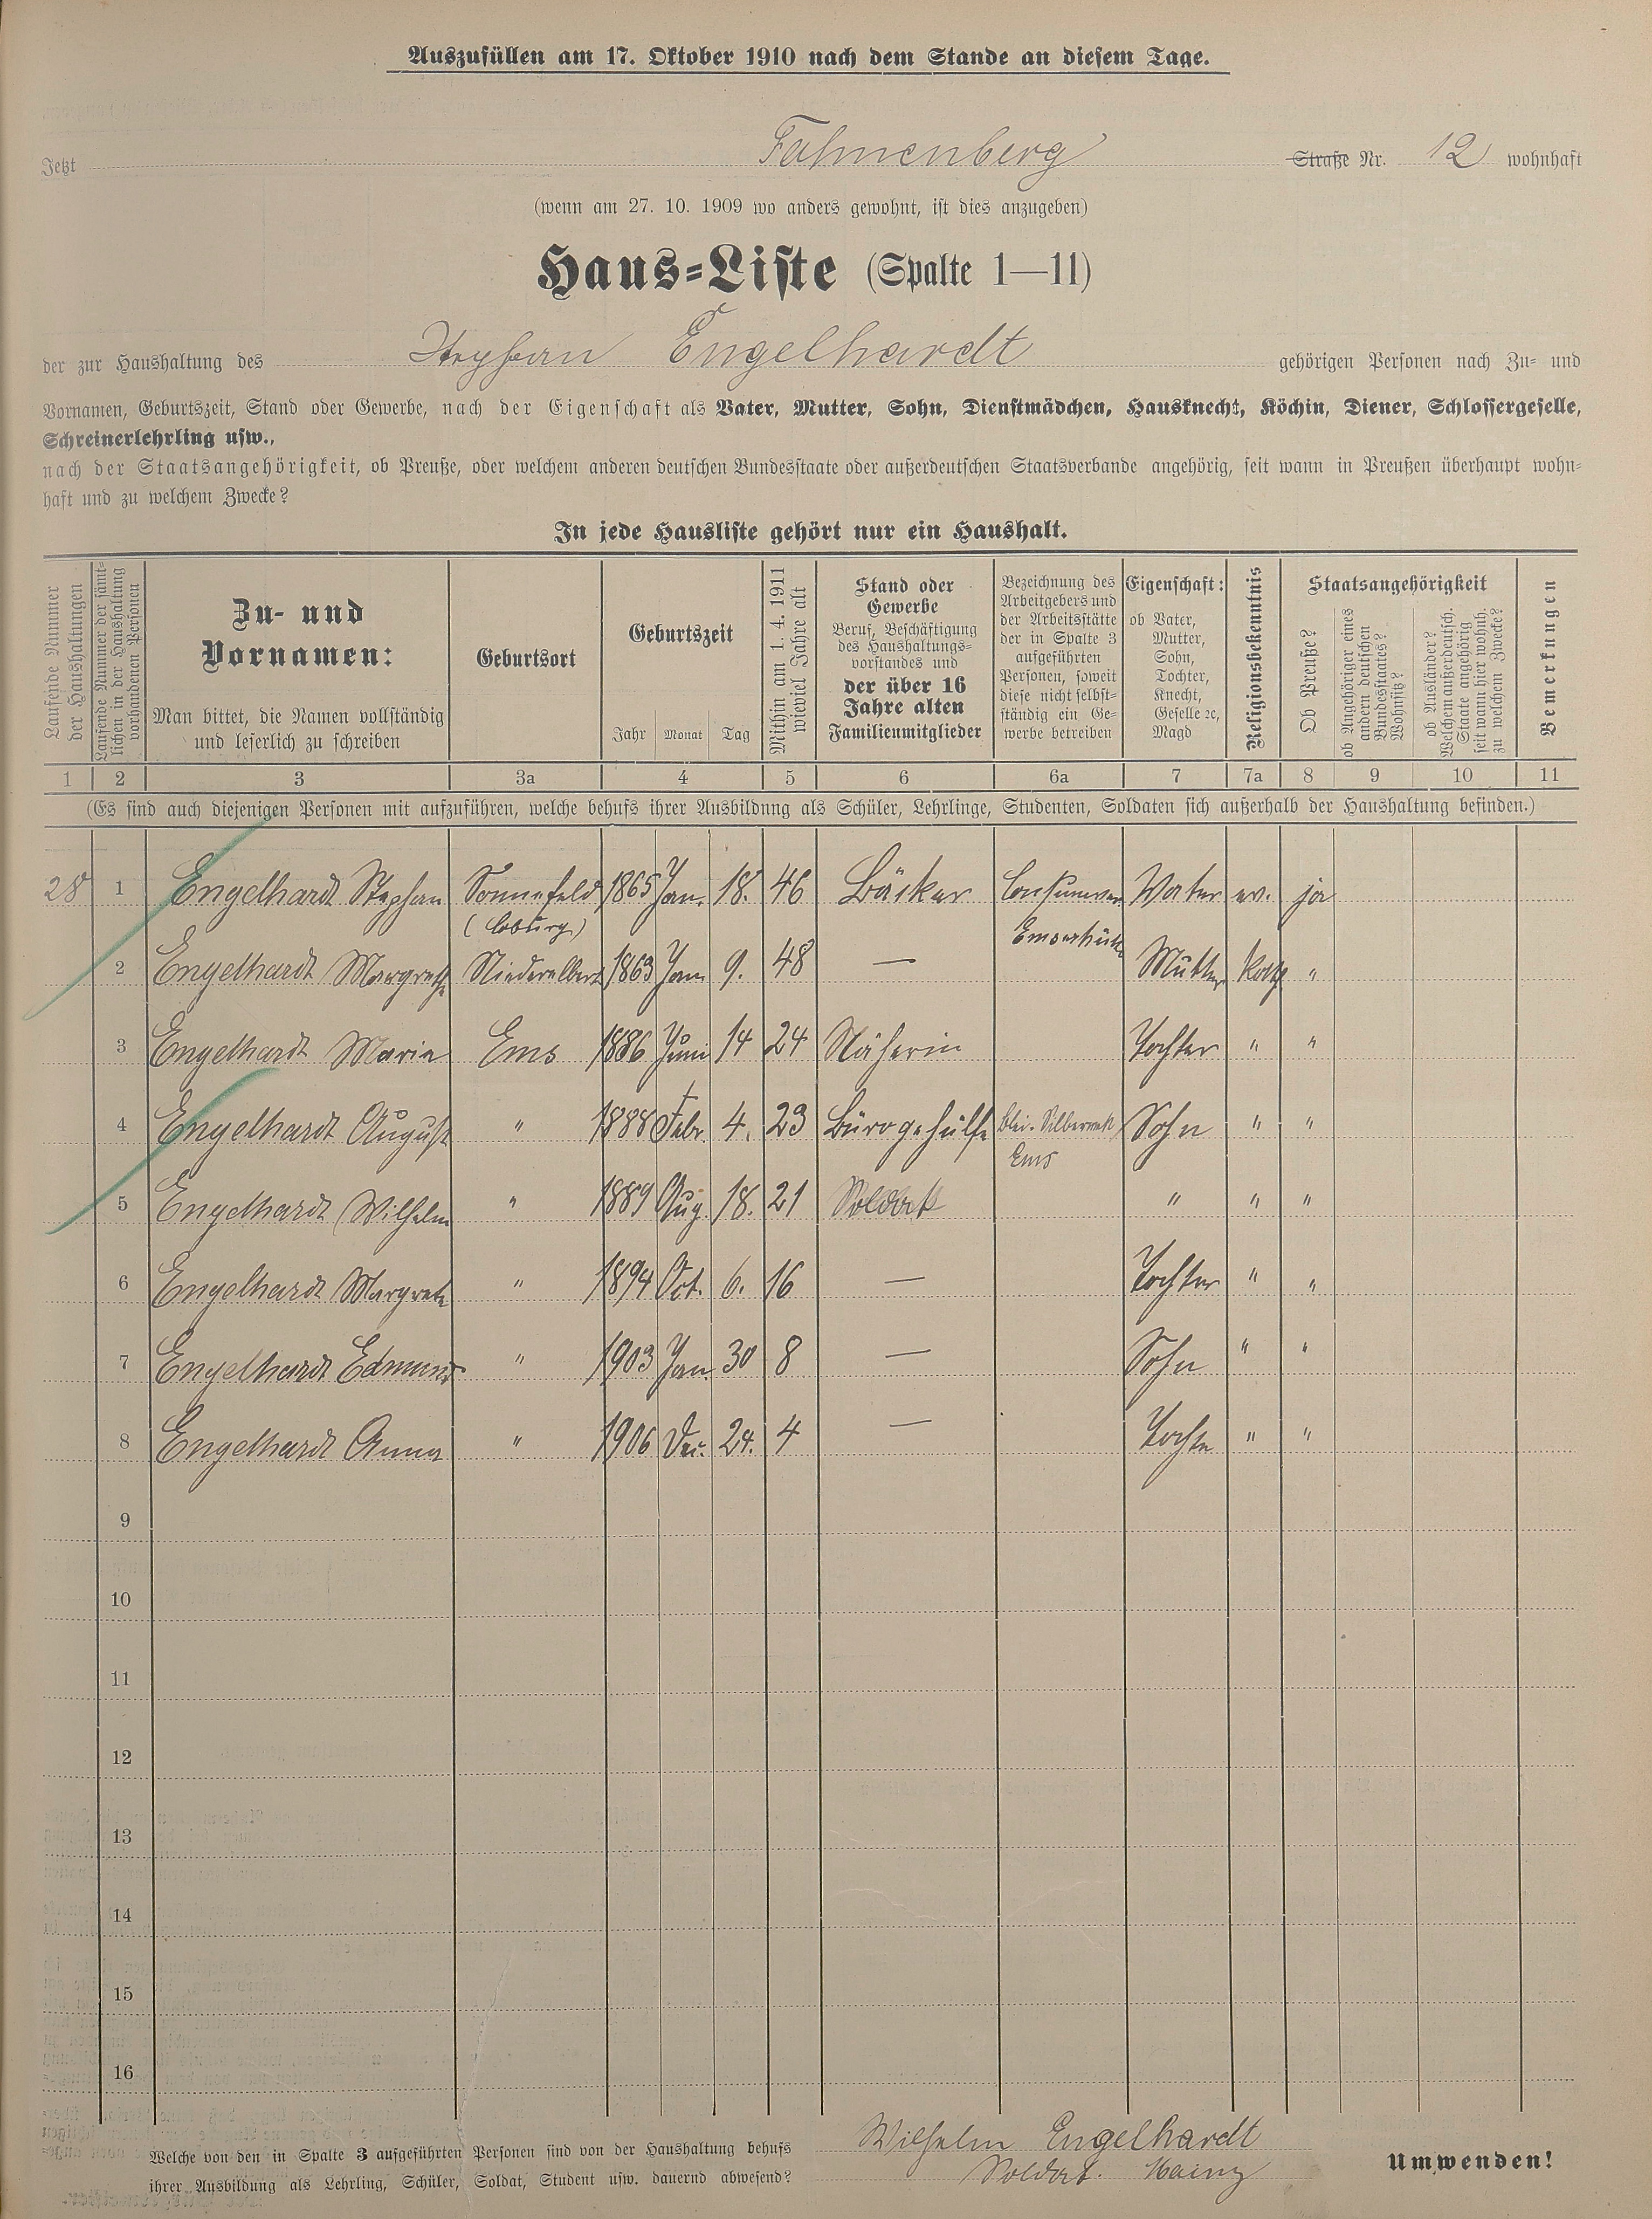 Auszufüllen am 17. Oktober 1910 nach dem Stande an diesem Tage.
Jetzt Fahnenberg Straße Nr. 12 wohnhaft
(wenn am 27. 10. 1909 wo anders gewohnt, ist dies anzugeben)
Haus-Liste (Spalte 1—11)
der zur Haushaltung des Stephan Engelhardt gehörigen Personen nach Zu- und
Vornamen, Geburtszeit, Stand oder Gewerbe, nach der Eigenschaft als Vater, Mutter, Sohn, Dienstmädchen, Hausknecht, Köchin, Diener, Schlossergeselle,
Schreinerlehrling usw.,
nach der Staatsangehörigkeit, ob Preuße, oder welchem anderen deutschen Bundesstaate oder außerdeutschen Staatsverbande angehörig, seit wann in Preußen überhaupt wohn-
haft und zu welchem Zwecke?
In jede Hausliste gehört nur ein Haushalt.
Laufende Nummer
der Haushaltungen
Laufende Nummer der sämt-
lichen in der Haushaltung
vorhandenen Personen
Zu- und
Vornamen:
Man bittet, die Namen vollständig
und leserlich zu schreiben
Geburtsort
Geburtszeit
Jahr Monat Tag
Mithin am 1. 4. 1911
wieviel Jahre alt
Stand oder
Gewerbe
Beruf, Beschäftigung
des Haushaltungs-
vorstandes und
der über 16
Jahre alten
Familienmitglieder
Bezeichnung des
Arbeitgebers und
der Arbeitsstätte
der in Spalte 3
aufgeführten
Personen, soweit
diese nicht selbst-
ständig ein Ge-
werbe betreiben
Eigenschaft:
ob Vater,
Mutter,
Sohn,
Tochter,
Knecht,
Geselle ꝛc,
Magd
Religionsbekenntnis
Staatsangehörigkeit
Ob Preuße?
ob Angehöriger eines
andern deutschen
Bundesstaates?
Wohnsitz?
ob Ausländer?
Welchem außerdeutsch.
Staate angehörig
seit wann hier wohnh.
zu welchem Zwecke?
Bemerkungen
1 2 3 3a 4 5 6 6a 7 7a 8 9 10 11
(Es sind auch diejenigen Personen mit aufzuführen, welche behufs ihrer Ausbildung als Schüler, Lehrlinge, Studenten, Soldaten sich außerhalb der Haushaltung befinden.)
28 1 Engelhardt Stephan Sonnefeld 1865 Jan. 18. 46 Bäcker Vater ev. ja
(Coburg)
Emserhütte
2 Engelhardt Margrethe Niederelbert 1863 Jan 9. 48 — Mutter kath "
3 Engelhardt Marie Ems 1886 Juni 14 24 Näherin Tochter " "
4 Engelhardt August " 1888 Febr 4. 23 Bürogehülfe Blei-Silberwerk Sohn " "
Ems
5 Engelhardt Wilhelm " 1889 Aug. 18. 21 Soldat " " "
6 Engelhardt Margrete " 1894 Oct. 6. 16 — Tochter " "
7 Engelhardt Edmund " 1903 Jan. 30 8 — Sohn " "
8 Engelhardt Anna " 1906 Dec. 24. 4 — Tochter " "
9
10
11
12
13
14
15
16
Welche von den in Spalte 3 aufgeführten Personen sind von der Haushaltung behufs Wilhelm Engelhardt
ihrer Ausbildung als Lehrling, Schüler, Soldat, Student usw. dauernd abwesend? Soldat. Mainz
Umwenden!